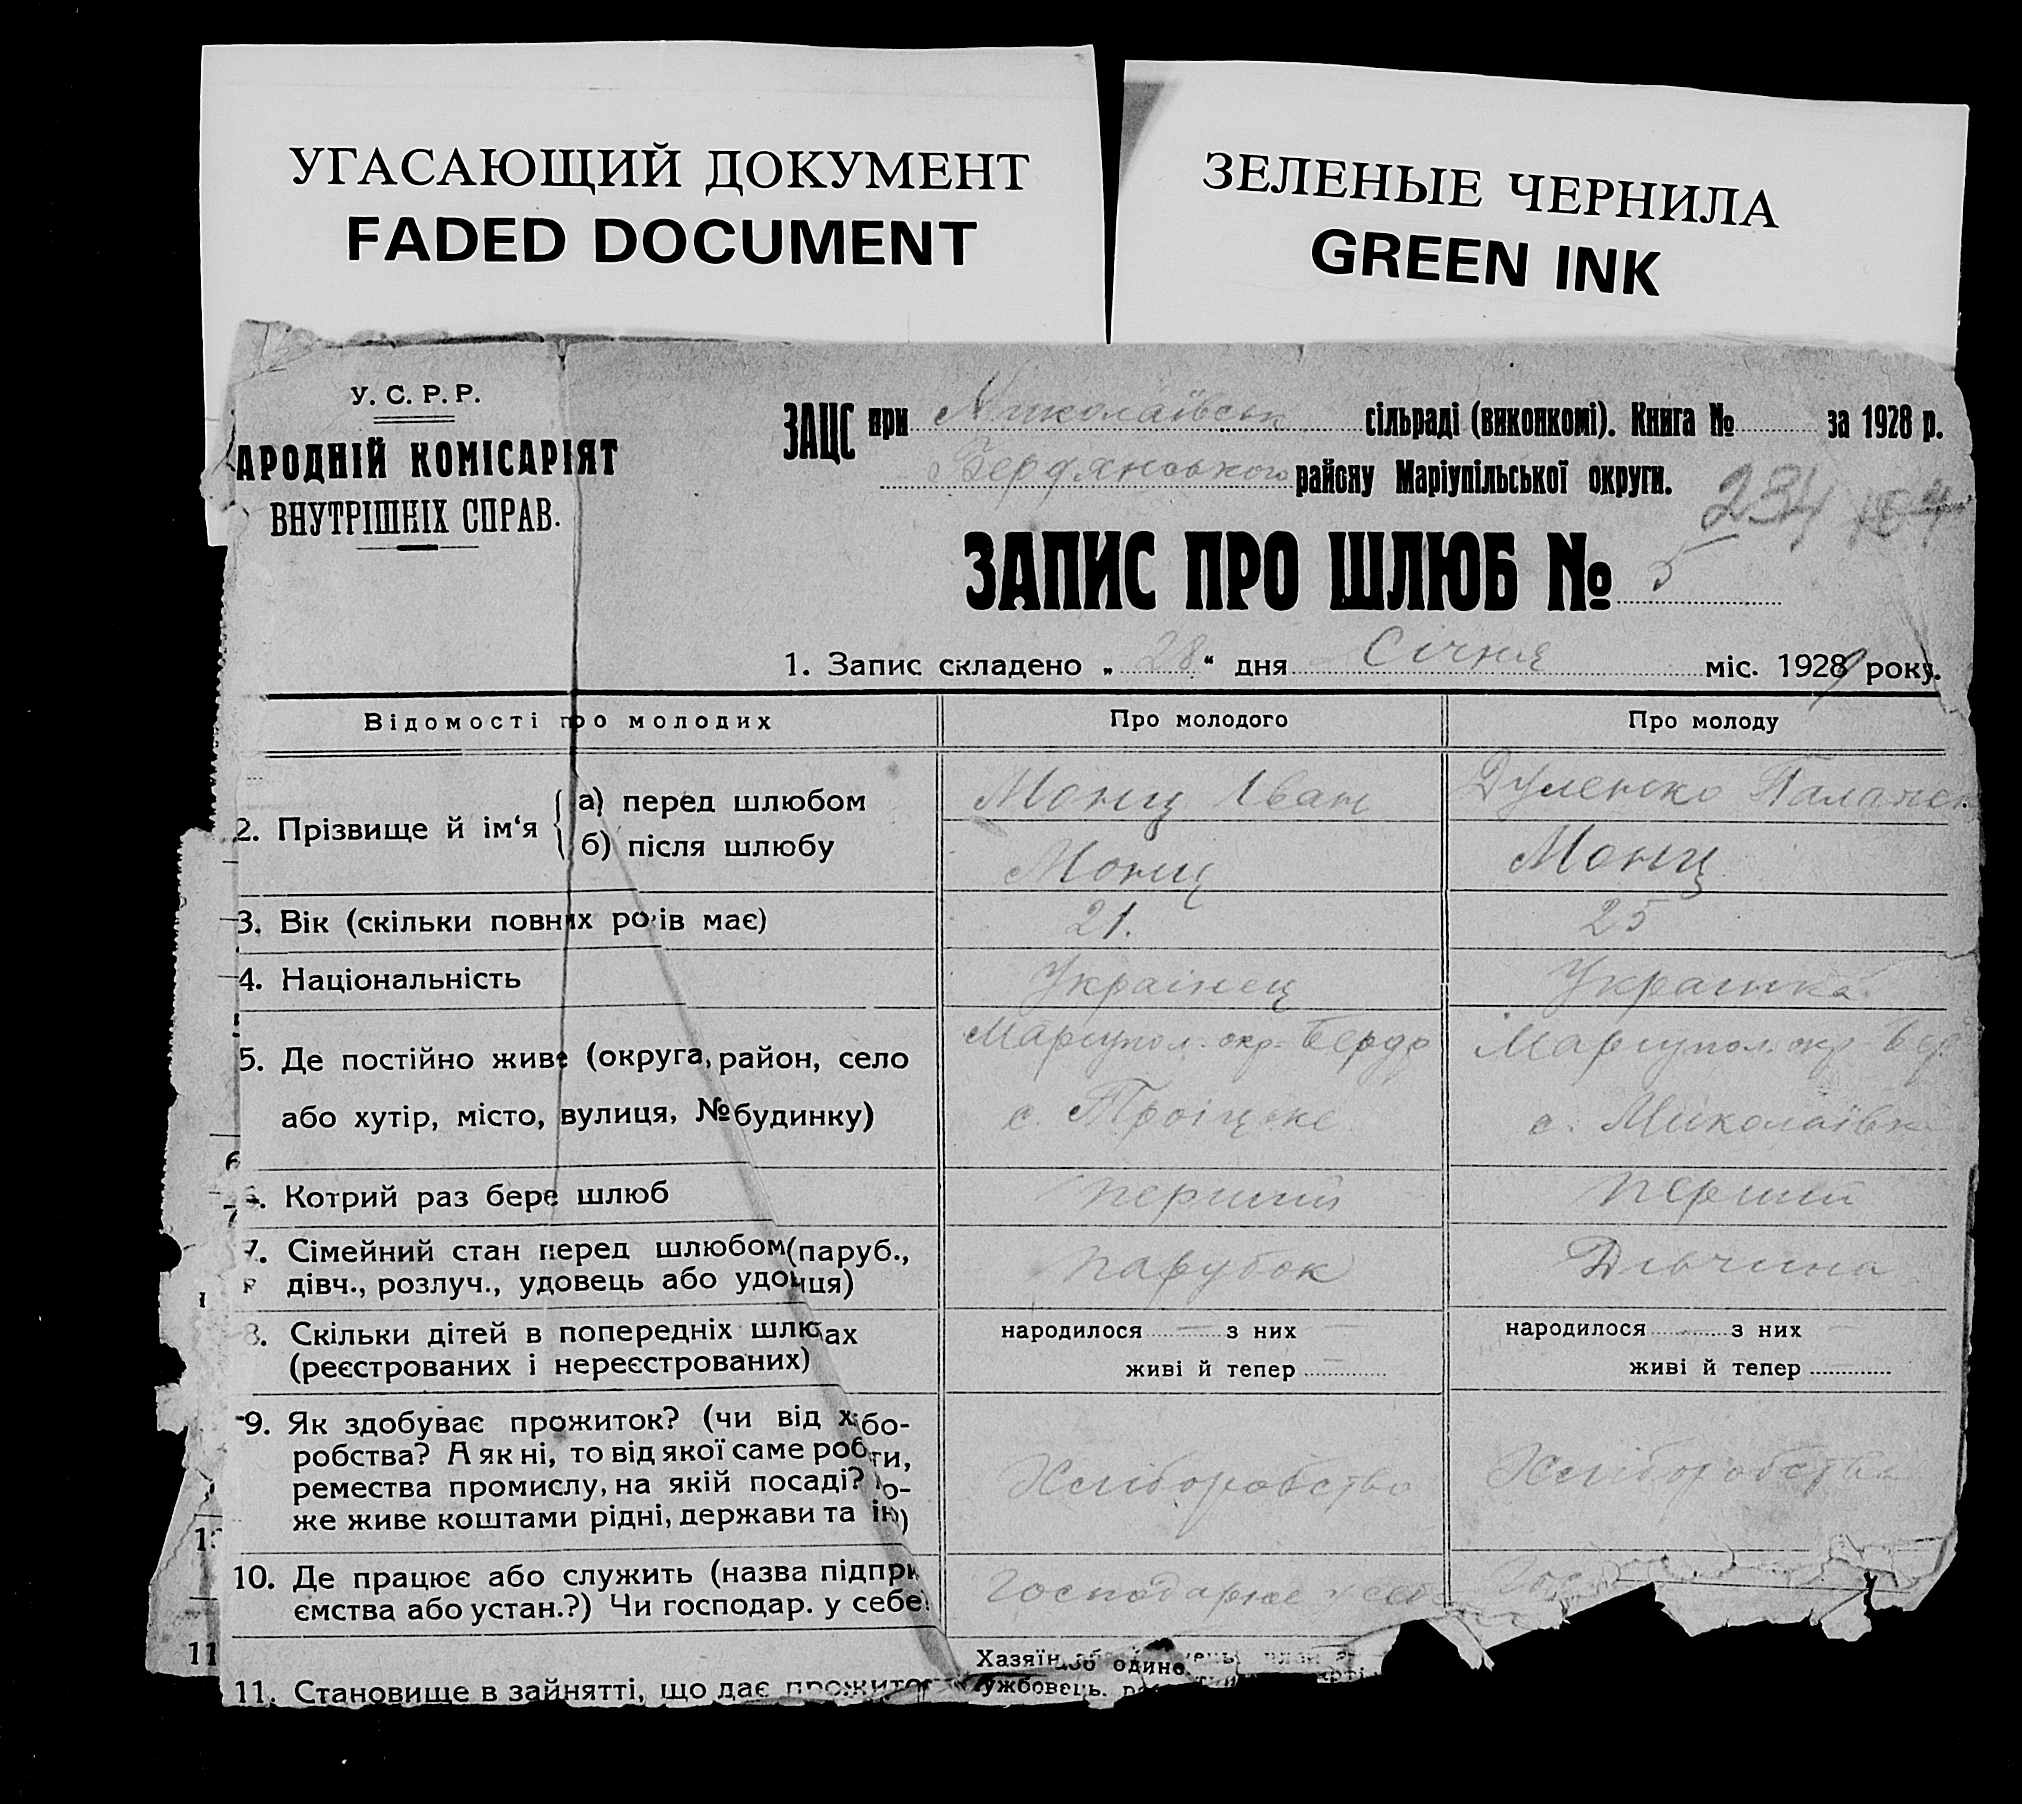 УГАСАЮЩИЙ ДОКУМЕНТ
FADED DOCUMENT
ЗЕЛЕНЫЕ ЧЕРНИЛА
GREEN INK
У. С. Р. Р.
АРОДНІЙ КОМІСАРІЯТ
ВНУТРІШНІХ СПРАВ.
ЗАЦС при Миколаівськ сільраді (виконкомі). Книга № за 1928 р.
Бердянського району Маріупільської округи.
234 164
ЗАПИС ПРО ШЛЮБ № 5
1. Запис складено „ 28 “ дня Січня міс. 1929 року.
Відомості про молодих
Про молодого
Про молоду
2. Прізвище й ім‘я
а) перед шлюбом
Монц Іван
Дуленко
б) після шлюбу
Монц
Монц
3. Вік (скільки повних років має)
21.
25
4. Національність
Украінец
Украинка
5. Де постійно живе (округа, район, село
або хутір, місто, вулиця, № будинку)
Мариупол. окр. Бердр
с. Троіцьке
Мариупол. окр. Бер
с. Миколаівк
6. Котрий раз бере шлюб
перший
перший
7. Сімейний стан перед шлюбом (паруб.,
дівч., розлуч., удовець або удовиця)
парубок
Дівчина
8. Скільки дітей в попередніх шлюбах
(реєстрованих і нереєстрованих)
народилося — з них —
живі й тепер —
народилося з них —
живі й тепер —
9. Як здобуває прожиток? (чи від х бо-
робства? А як ні, то від якої саме роботи,
ремества промислу, на якій посаді? о-
же живе коштами рідні, держави та ін)
Хліборобство
Хліборобство
10. Де працює або служить (назва підпри
ємства або устан.?) Чи господар. у себе
Господарює у себе
Гос
11. Становище в зайнятті, що дає прожиток
Хазяїн
або один
ужбовець,